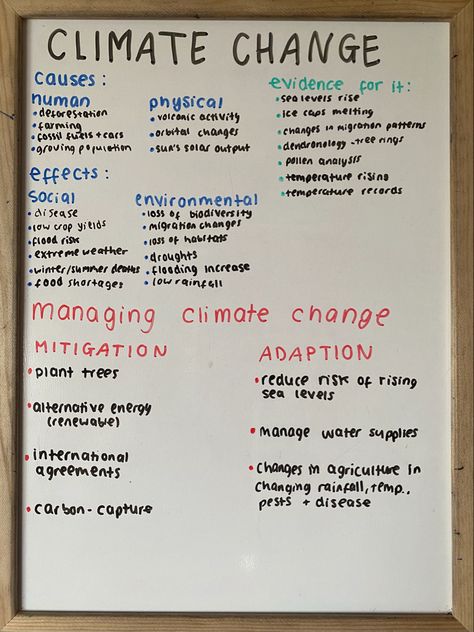 CLIMATE CHANGE
causes:
human
• deforestation
• farming
• fossil fuels + cars
• growing population
physical
• volcanic activity
• orbital changes
• sun's solar output
evidence for it:
• sea levels rise
• ice caps melting
• changes in migration patterns
• dendronology - tree rings
• pollen analysis
• temperature rising
• temperature records
effects:
social
• disease
• low crop yields
• flood risk
• extreme weather
• winter/summer deaths
• food shortages
environmental
• loss of biodiversity
• migration changes
• loss of habitats
• droughts
• flooding increase
• low rainfall
managing climate change
MITIGATION
• plant trees
• alternative energy
(renewable)
• international
agreements
• carbon-capture
ADAPTION
• reduce risk of rising
sea levels
• manage water supplies
• Changes in agriculture in
changing rainfall, temp.,
pests + disease